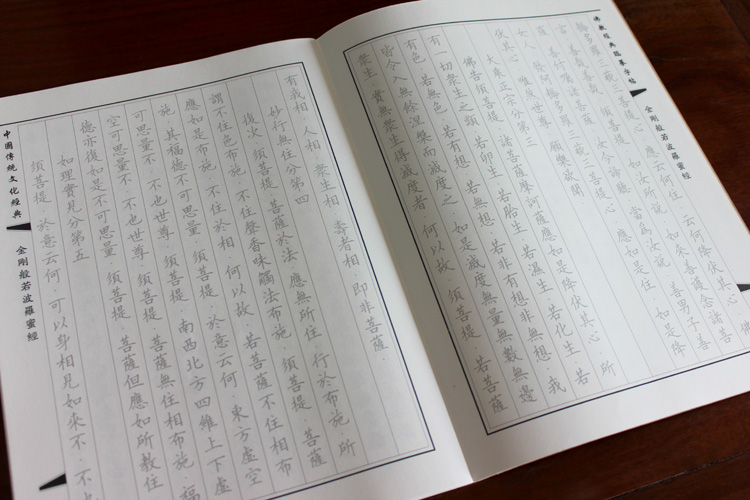 佛教經典臨摹字帖
金剛般若波羅蜜經
耨多羅三藐三菩提心 應云何住 云何降伏其心
言 善哉善哉 須菩提 如汝所說 如來善護念諸菩
善付囑諸菩薩 汝今諦聽 當為汝說 善男子善
女人 發阿耨多羅三藐三菩提心 應如是住 如是降
伏其心 唯然世尊 願樂欲聞
大乘正宗分第三
佛告須菩提 諸菩薩摩訶薩應如是降伏其心 所
有一切眾生之類 若卵生 若胎生 若濕生 若化生 若
有色 若無色 若有想 若無想 若非有想非無想 我
皆令入無餘涅槃而滅度之 如是滅度無量無數無邊
眾生 實無眾生得滅度者 何以故 須菩提 若菩薩
有我相 人相 眾生相 壽者相 即非菩薩
妙行無住分第四
復次 須菩提 菩薩於法 應無所住 行於布施 所
謂不住色布施 不住聲香味觸法布施 須菩提 菩薩
應如是布施 不住於相 何以故 若菩薩不住相布
施 其福德不可思量 須菩提 於意云何 東方虛空
可思量不 不也世尊 須菩提 南西北方四維上下虛
空可思量不 不也世尊 須菩提 菩薩無住相布施 福
德亦復如是不可思量 須菩提 菩薩但應如所教住
如理實見分第五
須菩提 於意云何 可以身相見如來不 不也
中國傳統文化經典
金剛般若波羅蜜經